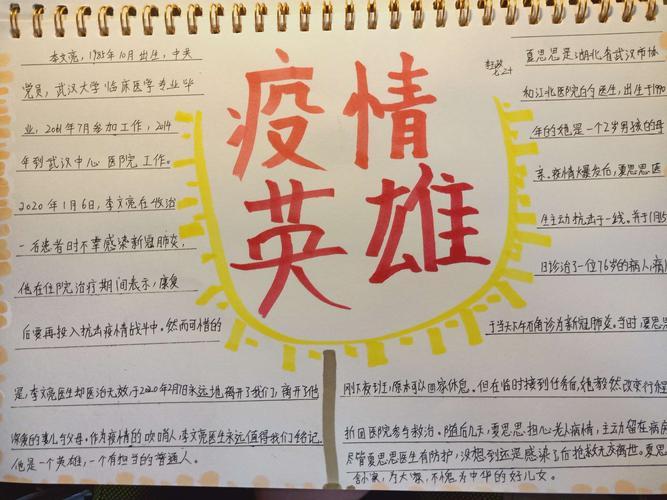 疫情
英雄
李文亮，1985年10月出生，中共
党员，武汉大学临床医学专业毕
业，2011年7月参加工作，2014
年到武汉中心医院工作。
2020年1月6日，李文亮在收治
一名患者时不幸感染新冠肺炎，
他在住院治疗期间表示，康复
后要再投入抗击疫情战斗中。然而可惜的
是，李文亮医生却医治无效，于2020年2月7日永远地离开了我们，离开了他
深爱的妻儿与父母。作为疫情的吹哨人，李文亮医生永远值得我们铭记。
他是一个英雄，一个有担当的普通人。
夏思思是湖北省武汉市协
和江北医院的医生，出生于1990
年的她是一个2岁男孩的母
亲。疫情大爆发后，夏思思医
生主动抗击于一线。并于1月15
日诊治了一位76岁的病人，病
于当天下午确诊为新冠肺炎。当时，夏思思
刚下夜班，原本可以回家休息。但在临时接到任务后，她毅然改变行程
折回医院参与救治。随后几天，夏思思担心老人病情，主动留在病房
尽管夏思思医生有防护，没想到还是感染了后抢救无效离世。夏思
舍小家，为大家，不愧为中华的好儿女。